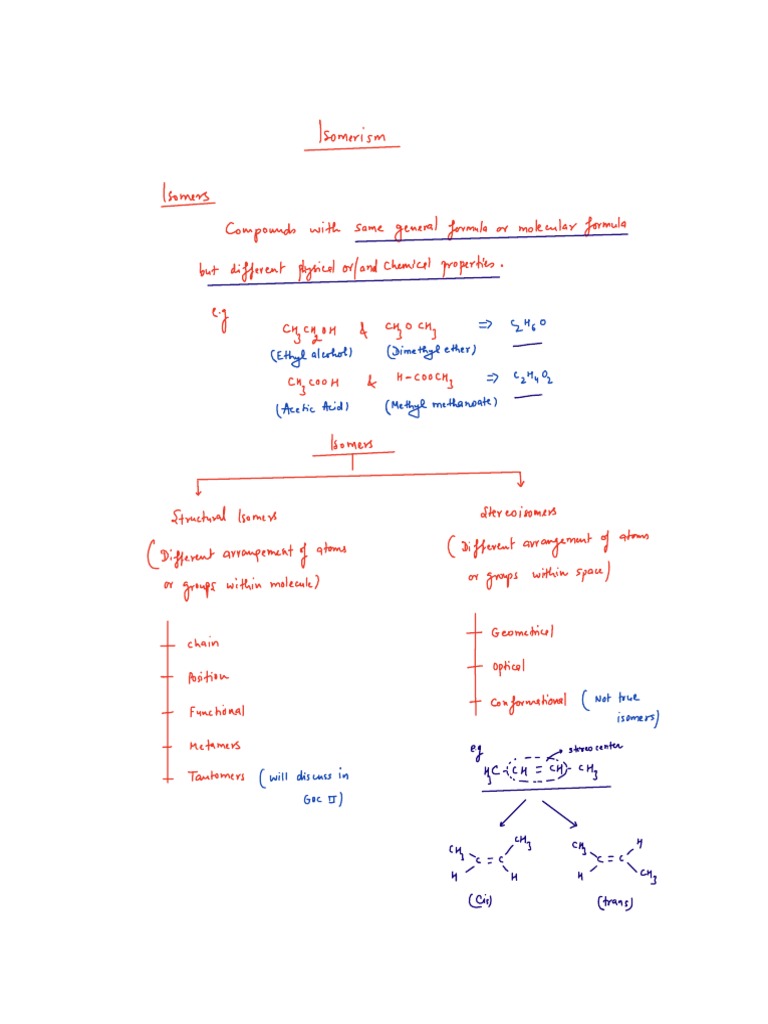 Isomerism
Isomers
Compounds with same general formula or molecular formula
but different physical or/and chemical properties.
e.g
CH₃CH₂OH & CH₃OCH₃ ⇒ C₂H₆O
(Ethyl alcohol) (Dimethyl ether)
CH₃COOH & H-COOCH₃ ⇒ C₂H₄O₂
(Acetic Acid) (Methyl methanoate)
Isomers
Structural Isomers
(Different arrangement of atoms
or groups within molecule)
chain
Position
Functional
Metamers
Tautomers (will discuss in
GOC II)
Stereoisomers
(Different arrangement of atoms
or groups within space)
Geometrical
Optical
Conformational (Not true
isomers)
eg
stereocenter
H₃C-CH=CH-CH₃
CH₃ CH₃
C=C
H H
(Cis)
CH₃ H
C=C
H CH₃
(trans)